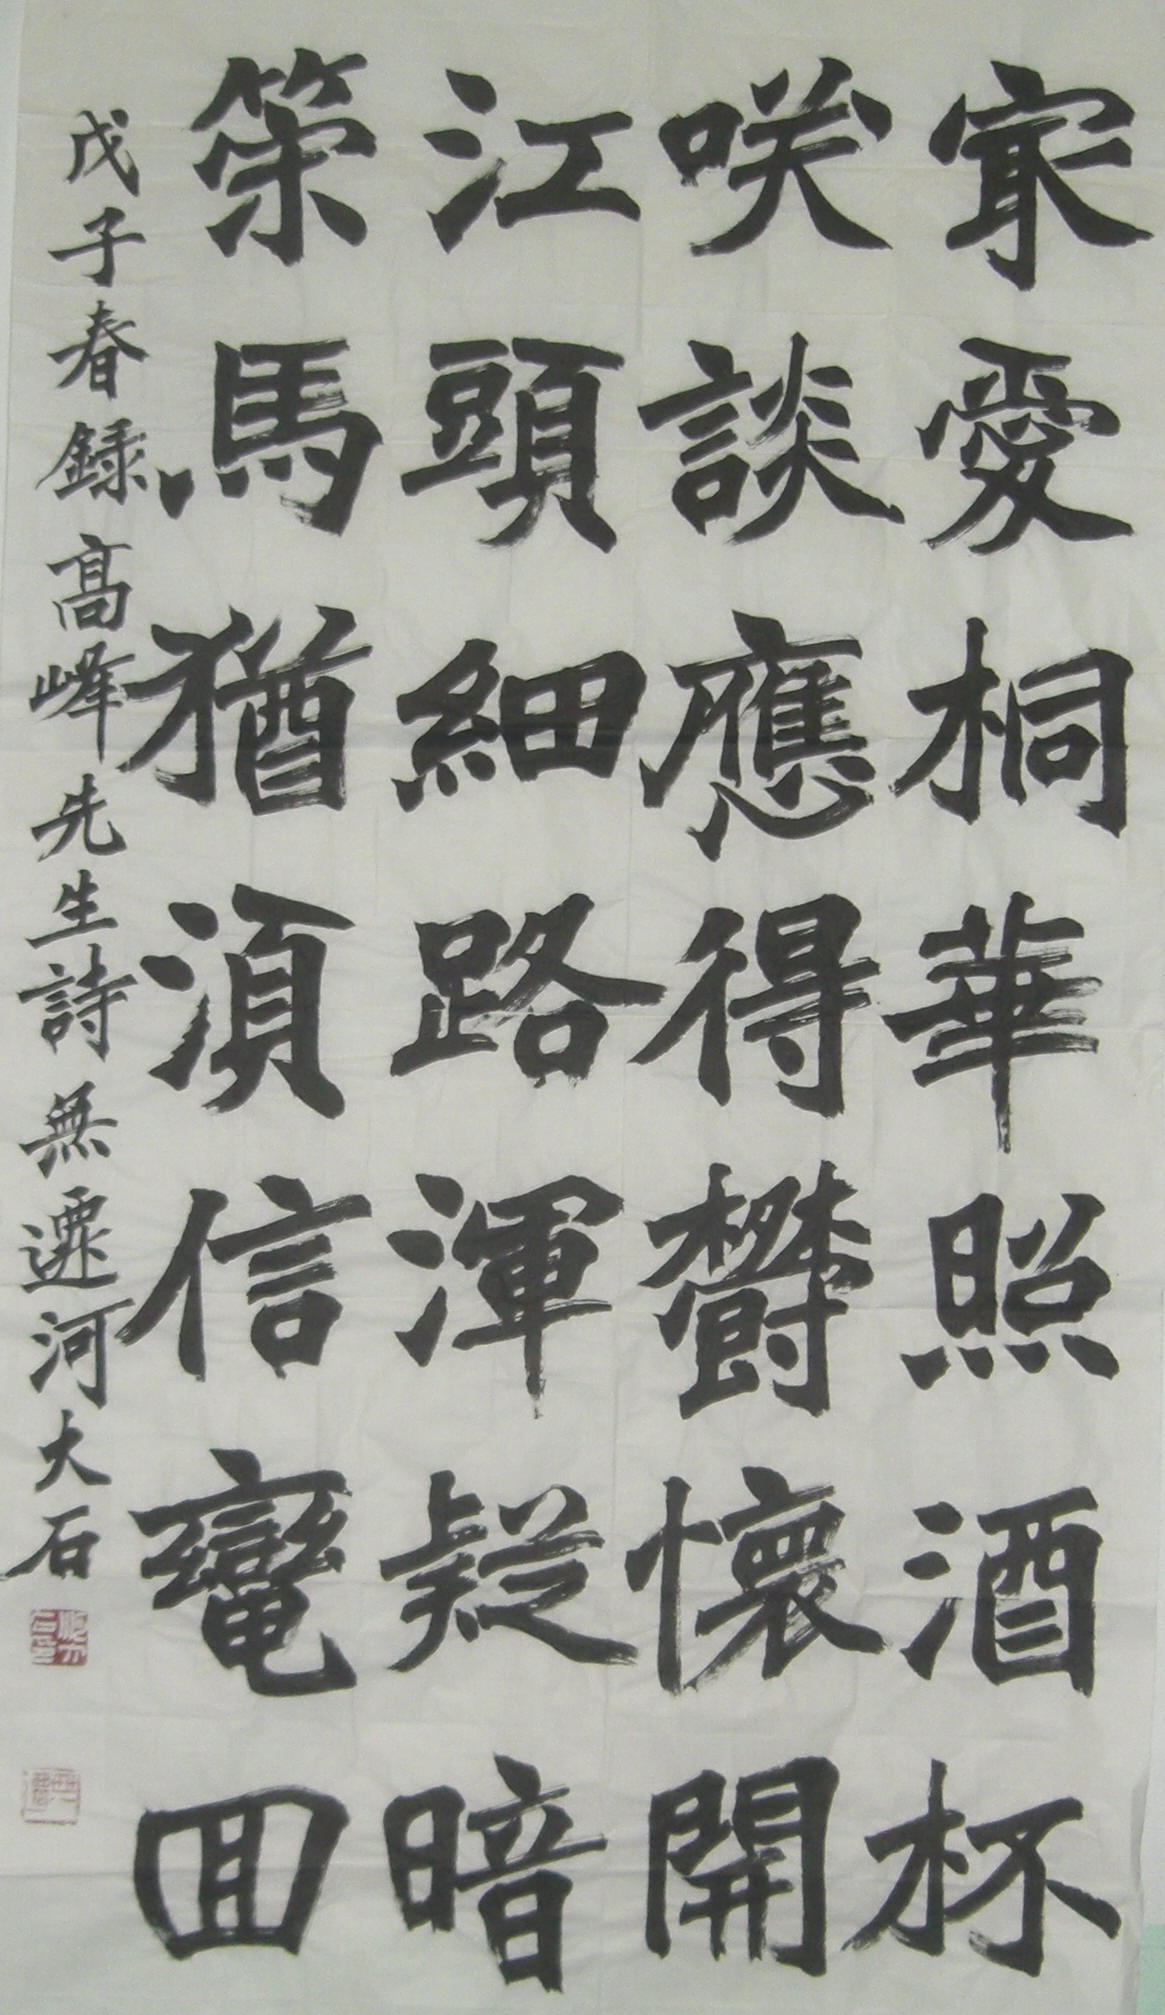 冣愛桐華照酒杯
咲談應得欝懷開
江頭細路渾疑暗
策馬猶須信轡回
戊子春錄高峰先生詩無遷河大石